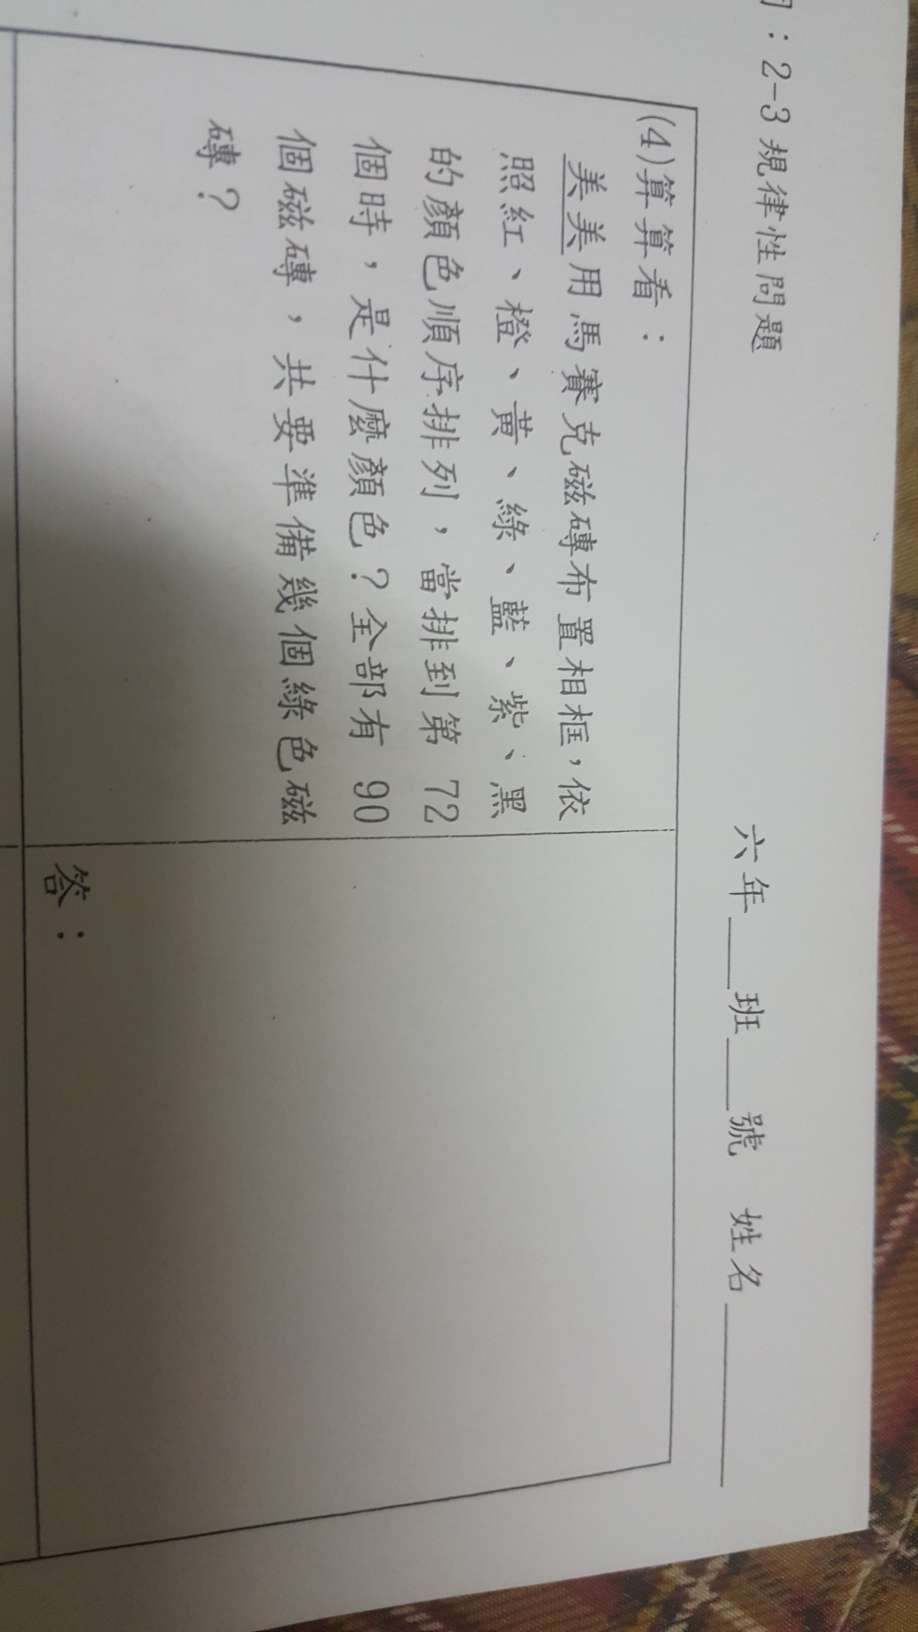 ：2-3 規律性問題
六年___班___號 姓名________
(4)算算看：
美美用馬賽克磁磚布置相框，依
照紅、橙、黃、綠、藍、紫、黑
的顏色順序排列，當排到第 72
個時，是什麼顏色？全部有 90
個磁磚，共要準備幾個綠色磁
磚？
答：